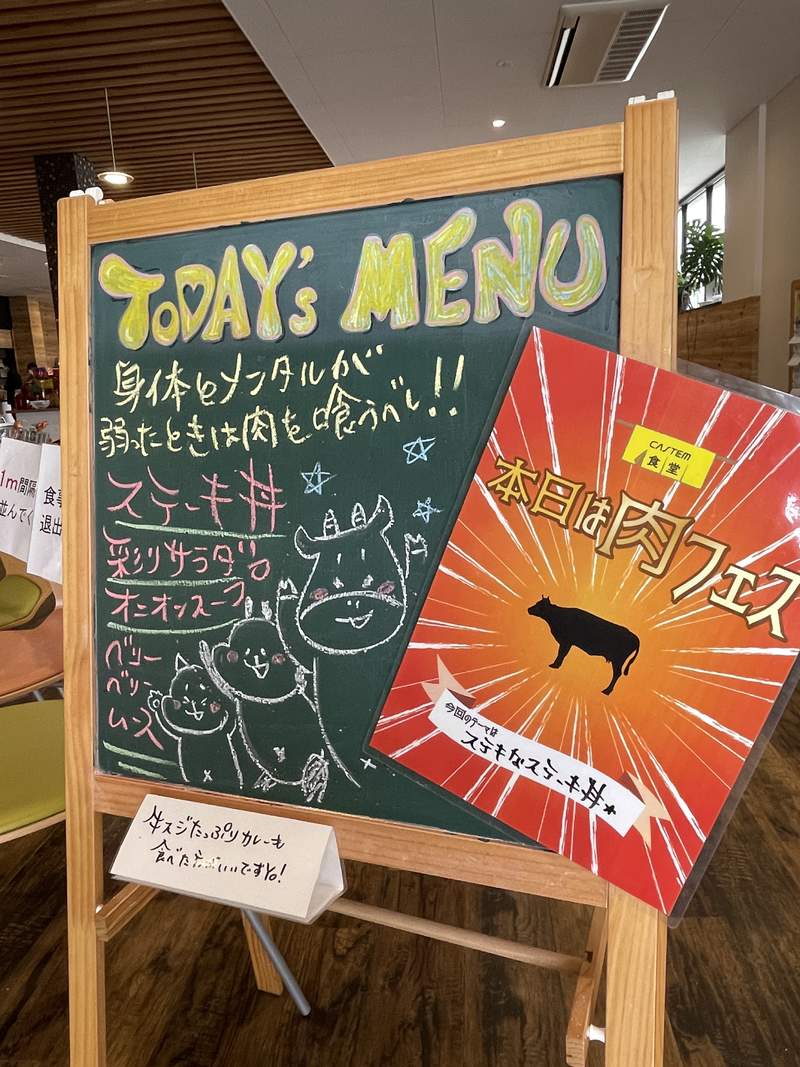 TODAY's MENU
身体とメンタルが
弱ったときは肉を喰うべし!!
ステーキ丼
彩りサラダ
オニオンスープ
ベリー
ベリー
ムース
CASTEM
食堂
本日は肉フェス
今回のテーマは
ステキなステーキ丼★
牛スジたっぷりカレーも
食べた方がいいですYo!
1m間隔
並んでく
食事
退出